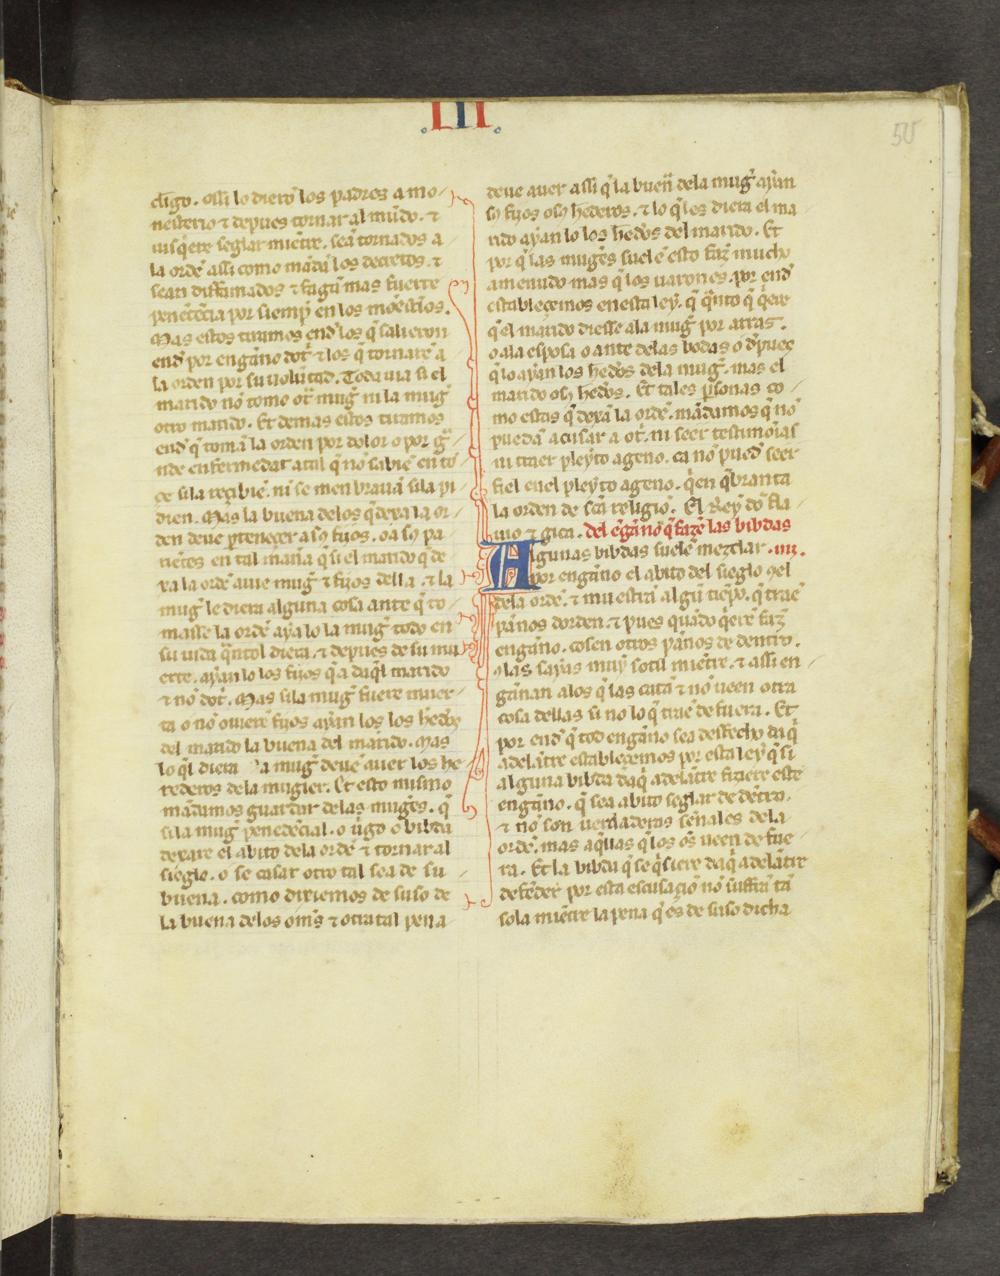 .LII.
50
cligo. ossi lo dierõ los padres a mo
nesterio ⁊ depues tornar al mũdo. ⁊
uisq̃ere seglar miẽtre. seã tornados a
la ordẽ assi como mãdã los decretos. ⁊
sean diffamados ⁊ fagã mas fuerte
penẽtẽcia por siemp̃ en los moẽsterios.
Mas estos tiramos end̃ los q̃ salieron
end̃ por engãno dot̃ ⁊ los q̃ tornarẽ a
la orden por su uolũtad. Toda uia si el
marido nõ tome ot̃ mug̃ ni la mug̃
otro marido. Et demas estos tiramos
end̃ q̃ tomã la orden por dolor o por g̃
nde enfermedat atal q̃ nõ sabiẽ entõ
çe sila reçibiẽ. ni se men brauã sila pi
dien. Mas la buena delos q̃ dexa la or
den deue p̃teneçer a sꝯ fijos. oa sꝯ pa
riẽtes en tal maña q̃ si el marido q̃ de
xa la ordẽ auie mug̃ ⁊ fijos della. ⁊ la
mug̃ le diera alguna cosa ante q̃ to
masse la ordẽ aya lo la mug̃ todo en
su uida q̃ntol diera. ⁊ depues de su mu
erte. ayan lo los fijos q̃ a daq̃l marido
⁊ nõ dot̃. Mas sila mug̃ fuere muer
ta o nõ ouierẽ fijos ayan los los hed̃os
del marido la buena del marido. Mas
lo q̃l diera a mug̃ deuẽ auer los he
rederos de la mugier. Et esto mismo
mãdamos guardar delas mug̃es. q̃
sila mug̃ penedẽcial. o ũgo o bibda
dexare el abito dela ordẽ ⁊ tornar al
sieglo. o se casar otro tal sea de su
buena. como diriemos de suso de
la buena delos om̃s ⁊ otra tal pena
deue auer assi q̃ la buen̄ dela mug̃ ayan
sꝯ fijos o sꝯ hederos. ⁊ lo q̃ les diera el ma
rido ayan lo los hed̃os del marido. Et
por q̃ las mug̃es suelẽ esto faz̃ mucho
amenudo mas q̃ los uarones. por end̃
estableçemos en esta ley. q̃ q̃nto q̃ q̃er
q̃l marido diesse ala mug̃ por arras.
o ala esposa o ante delas bodas o d̃pues
q̃ lo ayan los hed̃os dela mug̃. mas el
marido o sꝯ hed̃os. Et tales p̃sonas co
mo estas q̃ dexã la ordẽ. mãdamos q̃ nõ
puedã acusar a ot̃. ni seer testimonias
ni traer pleyto ageno. ca nõ pued̃ seer
fiel en el pleyto ageno. q̃en q̃branta
la orden de scã religiõ. El Rey dõ Fla
uio ⁊ gica. del ẽgãno q̃ fazẽ las bibdas
Algunas bibdas suelẽ mezclar .iiii.
por engãno el abito del sieglo ꝯel
dela ordẽ. ⁊ muestrã algũ tiẽpo. q̃ traẽ
pãnos dorden. ⁊ pues quãdo q̃erẽ faz̃
engãno. cosen otros pãnos de dentro.
alas sayas muy sotil miẽtre. ⁊ assi en
gãnan alos q̃ las catã ⁊ nõ ueen otra
cosa dellas si no lo q̃ traẽ de fuera. Et
por end̃ q̃ tod engãno sea desfecho daq̃
adelãtre estableçemos por esta ley q̃ si
alguna bibda daq̃ adelãtre fiziere este
engãno. q̃ sea abito seglar de dẽtro.
⁊ nõ son uerdaderas señales dela
ordẽ. mas aq̃llas q̃ los oẽs ueen de fue
ra. Et la bibda q̃ se q̃siere daq̃ adelãtre
defẽder por esta escusaçiõ nõ suffrirã tã
sola miẽtre la pena q̃ es de suso dicha